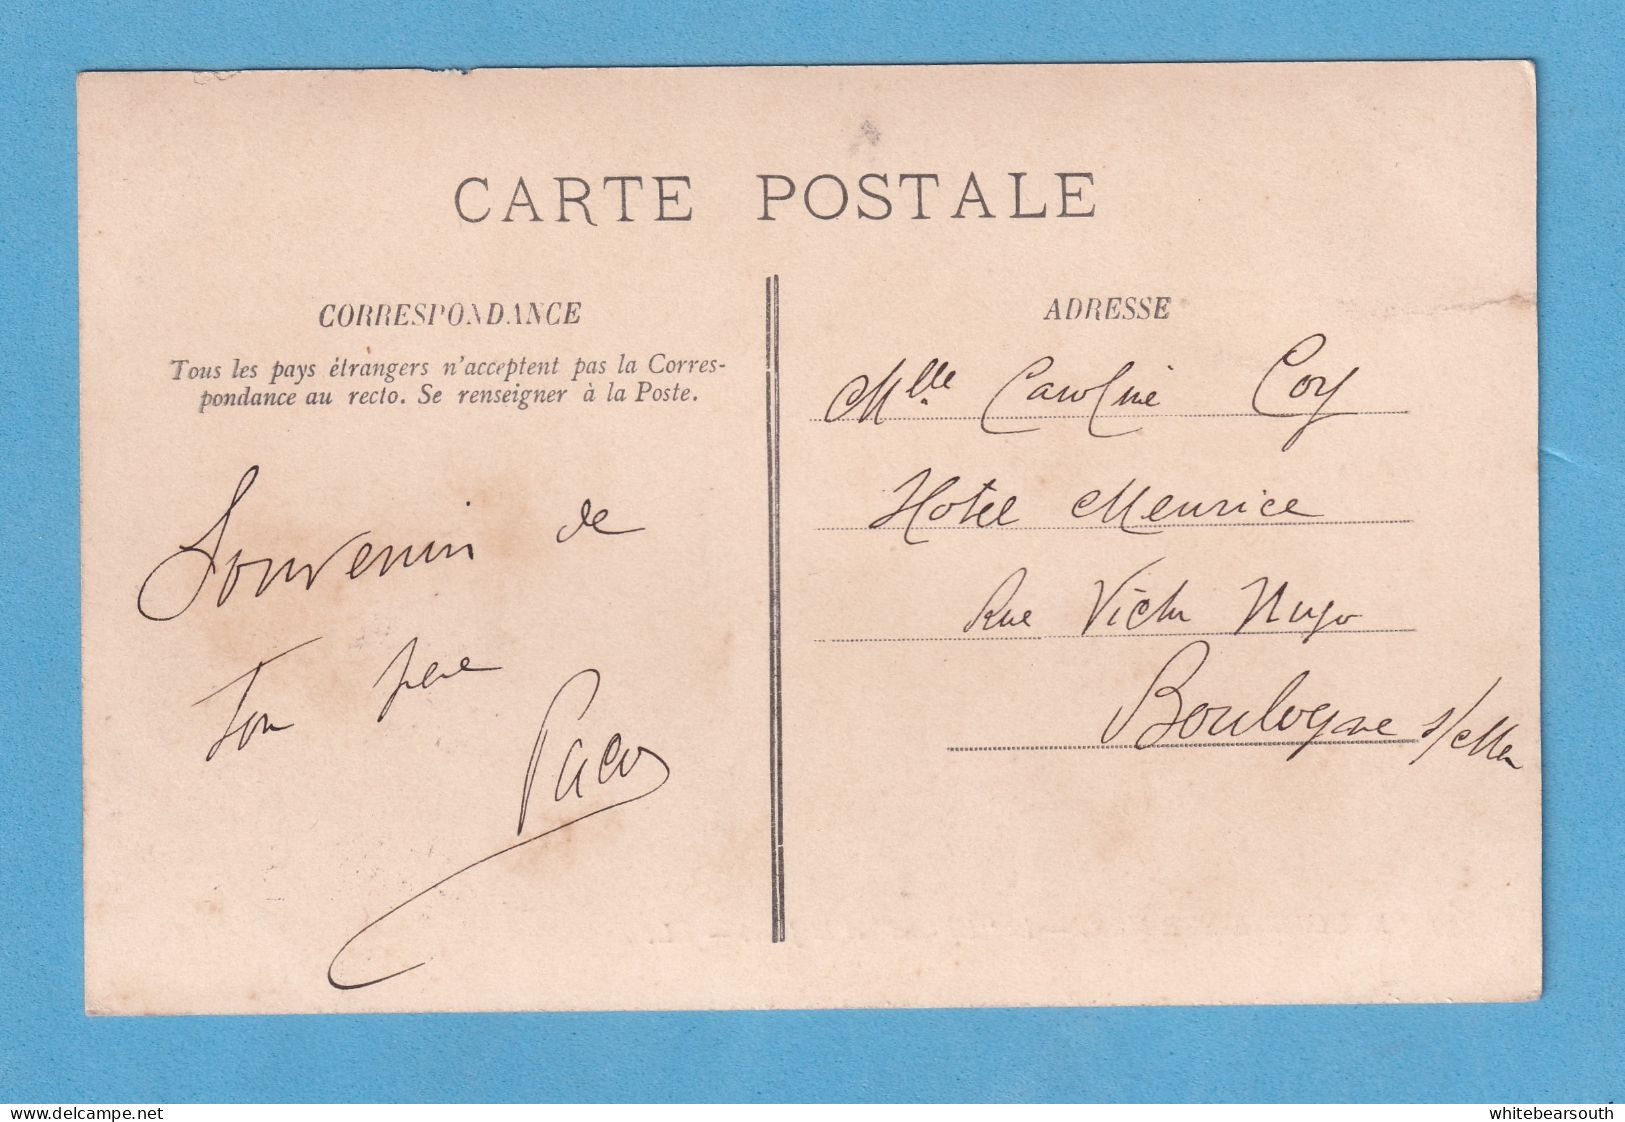 CARTE POSTALE
CORRESPONDANCE
Tous les pays étrangers n'acceptent pas la Corres-
pondance au recto. Se renseigner à la Poste.
Souvenir de
ton père
ADRESSE
Mlle Caroline Coy
Hotel Meurice
Rue Victor Hugo
Boulogne s/Mer
Delcampe.net
whitebearsouth